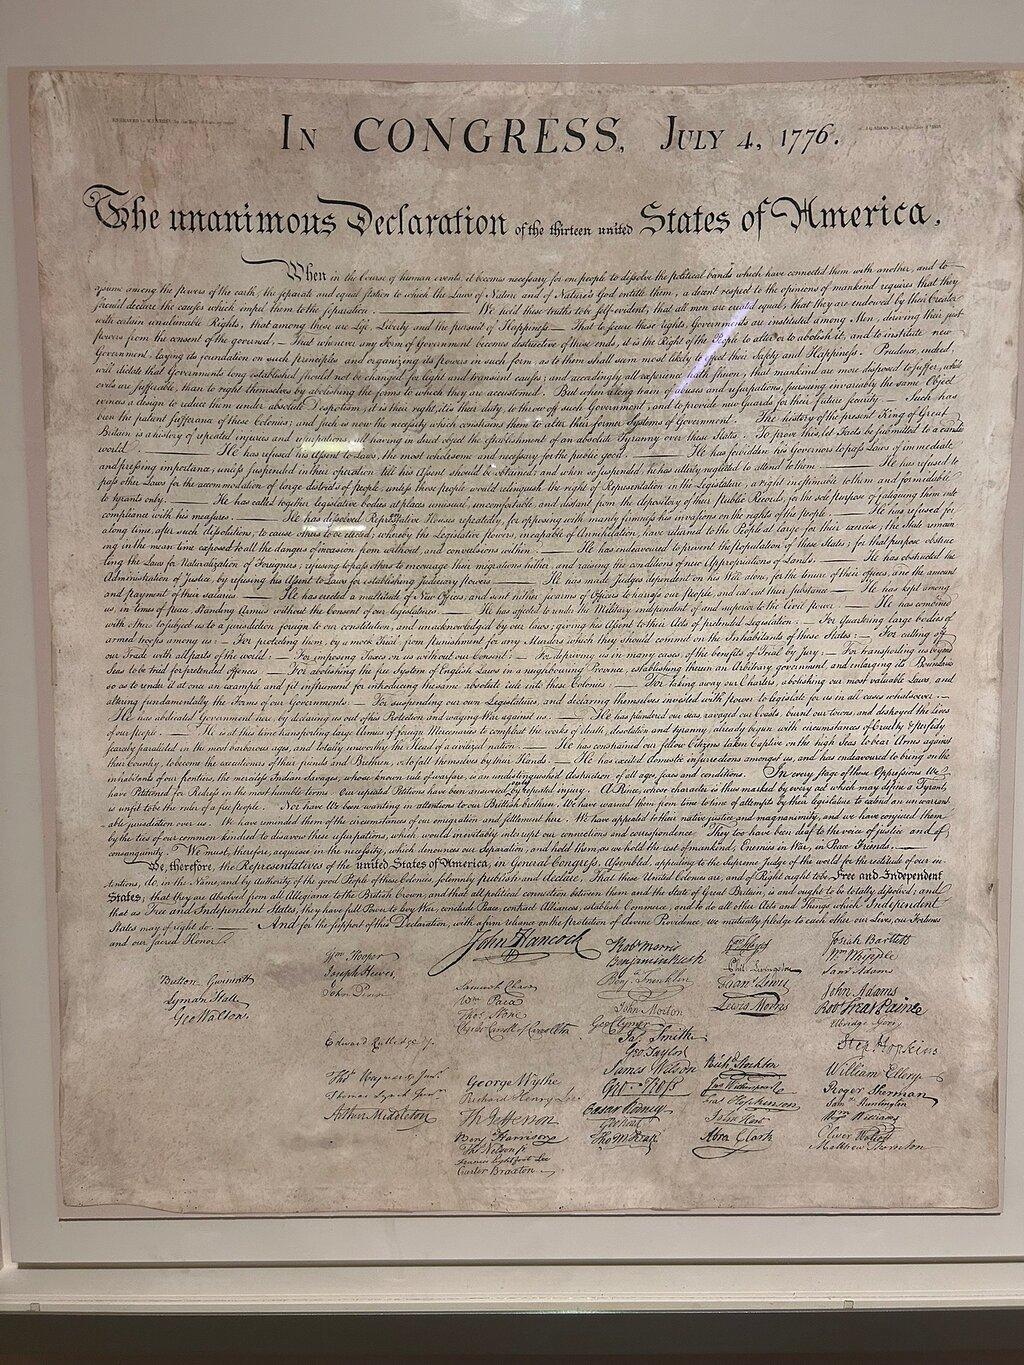 In CONGRESS, July 4, 1776.
The unanimous Declaration of the thirteen united States of America,
When in the Course of human events, it becomes necessary for one people to dissolve the political bands which have connected them with another, and to
assume among the powers of the earth, the separate and equal station to which the Laws of Nature and of Nature's God entitle them, a decent respect to the opinions of mankind requires that they
should declare the causes which impel them to the separation. We hold these truths to be self-evident, that all men are created equal, that they are endowed by their Creator
with certain unalienable Rights, that among these are Life, Liberty and the pursuit of Happiness — That to secure these rights, Governments are instituted among Men, deriving their just
powers from the consent of the governed, — That whenever any Form of Government becomes destructive of these ends, it is the Right of the People to alter or to abolish it, and to institute new
Government, laying its foundation on such principles and organizing its powers in such form, as to them shall seem most likely to effect their Safety and Happiness. Prudence, indeed,
will dictate that Governments long established should not be changed for light and transient causes; and accordingly all experience hath shewn, that mankind are more disposed to suffer, while
evils are sufferable, than to right themselves by abolishing the forms to which they are accustomed. But when a long train of abuses and usurpations, pursuing invariably the same Object
evinces a design to reduce them under absolute Despotism, it is their right, it is their duty, to throw off such Government, and to provide new Guards for their future security. — Such has
been the patient sufferance of these Colonies; and such is now the necessity which constrains them to alter their former Systems of Government. The history of the present King of Great
Britain is a history of repeated injuries and usurpations, all having in direct object the establishment of an absolute Tyranny over these States. To prove this, let Facts be submitted to a candid
world. — He has refused his Assent to Laws, the most wholesome and necessary for the public good. — He has forbidden his Governors to pass Laws of immediate
and pressing importance, unless suspended in their operation till his Assent should be obtained; and when so suspended, he has utterly neglected to attend to them. — He has refused to
pass other Laws for the accommodation of large districts of people, unless those people would relinquish the right of Representation in the Legislature, a right inestimable to them and formidable
to tyrants only. — He has called together legislative bodies at places unusual, uncomfortable, and distant from the depository of their Public Records, for the sole purpose of fatiguing them into
compliance with his measures. — He has dissolved Representative Houses repeatedly, for opposing with manly firmness his invasions on the rights of the people. — He has refused for
a long time, after such dissolutions, to cause others to be elected; whereby the Legislative powers, incapable of Annihilation, have returned to the People at large for their exercise; the State remain
ing in the mean time exposed to all the dangers of invasion from without, and convulsions within. — He has endeavoured to prevent the population of these States; for that purpose obstruc
ting the Laws for Naturalization of Foreigners; refusing to pass others to encourage their migrations hither, and raising the conditions of new Appropriations of Lands. — He has obstructed the
Administration of Justice, by refusing his Assent to Laws for establishing Judiciary powers. — He has made Judges dependent on his Will alone, for the tenure of their offices, and the amount
and payment of their salaries. — He has erected a multitude of New Offices, and sent hither swarms of Officers to harrass our people, and eat out their substance. — He has kept among
us, in times of peace, Standing Armies without the Consent of our legislatures. — He has affected to render the Military independent of and superior to the Civil power. — He has combined
with others to subject us to a jurisdiction foreign to our constitution, and unacknowledged by our laws; giving his Assent to their Acts of pretended Legislation: — For Quartering large bodies of
armed troops among us: — For protecting them, by a mock Trial, from punishment for any Murders which they should commit on the Inhabitants of these States: — For cutting off
our Trade with all parts of the world: — For imposing Taxes on us without our Consent: — For depriving us in many cases, of the benefits of Trial by Jury: — For transporting us beyond
Seas to be tried for pretended offences: — For abolishing the free System of English Laws in a neighbouring Province, establishing therein an Arbitrary government, and enlarging its Boundaries
so as to render it at once an example and fit instrument for introducing the same absolute rule into these Colonies: — For taking away our Charters, abolishing our most valuable Laws, and
altering fundamentally the Forms of our Governments: — For suspending our own Legislatures, and declaring themselves invested with power to legislate for us in all cases whatsoever. —
He has abdicated Government here, by declaring us out of his Protection and waging War against us. — He has plundered our seas, ravaged our Coasts, burnt our towns, and destroyed the lives
of our people. — He is at this time transporting large Armies of foreign Mercenaries to compleat the works of death, desolation and tyranny, already begun with circumstances of Cruelty & perfidy
scarcely paralleled in the most barbarous ages, and totally unworthy the Head of a civilized nation. — He has constrained our fellow Citizens taken Captive on the high Seas to bear Arms against
their Country, to become the executioners of their friends and Brethren, or to fall themselves by their Hands. — He has excited domestic insurrections amongst us, and has endeavoured to bring on the
inhabitants of our frontiers, the merciless Indian Savages, whose known rule of warfare, is an undistinguished destruction of all ages, sexes and conditions. In every stage of these Oppressions We
have Petitioned for Redress in the most humble terms: Our repeated Petitions have been answered only by repeated injury. A Prince, whose character is thus marked by every act which may define a Tyrant,
is unfit to be the ruler of a free people. Nor have We been wanting in attentions to our Brittish brethren. We have warned them from time to time of attempts by their legislature to extend an unwarrant
able jurisdiction over us. We have reminded them of the circumstances of our emigration and settlement here. We have appealed to their native justice and magnanimity, and we have conjured them
by the ties of our common kindred to disavow these usurpations, which would inevitably interrupt our connections and correspondence. They too have been deaf to the voice of justice and of
consanguinity. We must, therefore, acquiesce in the necessity, which denounces our Separation, and hold them, as we hold the rest of mankind, Enemies in War, in Peace Friends. —
We, therefore, the Representatives of the united States of America, in General Congress, Assembled, appealing to the Supreme Judge of the world for the rectitude of our in-
tentions, do, in the Name, and by Authority of the good People of these Colonies, solemnly publish and declare, That these United Colonies are, and of Right ought to be Free and Independent
States; that they are Absolved from all Allegiance to the British Crown, and that all political connection between them and the State of Great Britain, is and ought to be totally dissolved; and
that as Free and Independent States, they have full Power to levy War, conclude Peace, contract Alliances, establish Commerce, and to do all other Acts and Things which Independent
States may of right do. — And for the support of this Declaration, with a firm reliance on the protection of divine Providence, we mutually pledge to each other our Lives, our Fortunes
and our sacred Honor.
Button Gwinnett
Lyman Hall
Geo Walton.
Wm Hooper
Joseph Hewes,
John Penn
Edward Rutledge
Thos Heyward Junr.
Thomas Lynch Junr.
Arthur Middleton
John Hancock
Samuel Chase
Wm Paca
Thos Stone
Charles Carroll of Carrollton
George Wythe
Richard Henry Lee
Th Jefferson
Benj Harrison
Thos Nelson jr
Francis Lightfoot Lee
Carter Braxton
Robt Morris
Benjamin Rush
Benj. Franklin
John Morton
Geo Clymer
Jas. Smith
Geo. Taylor
James Wilson
Geo. Ross
Caesar Rodney
Geo Read
Tho M:Kean
Wm Floyd
Phil. Livingston
Frans. Lewis
Lewis Morris
Richd. Stockton
Jno Witherspoon
Fras. Hopkinson
John Hart
Abra Clark
Josiah Bartlett
Wm Whipple
Saml Adams
John Adams
Robt Treat Paine
Elbridge Gerry
Step Hopkins
William Ellery
Roger Sherman
Saml Huntington
Wm Williams
Oliver Wolcott
Matthew Thornton